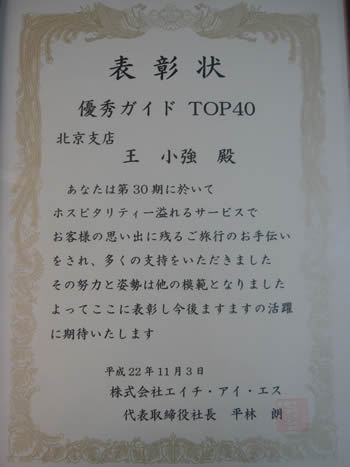 表彰状
優秀ガイド TOP40
北京支店
王 小強 殿
あなたは第30期に於いて
ホスピタリティー溢れるサービスで
お客様の思い出に残るご旅行のお手伝い
をされ、多くの支持をいただきました
その努力と姿勢は他の模範となりました
よってここに表彰し今後ますますの活躍
に期待いたします
平成22年11月3日
株式会社エイチ・アイ・エス
代表取締役社長 平林 朗